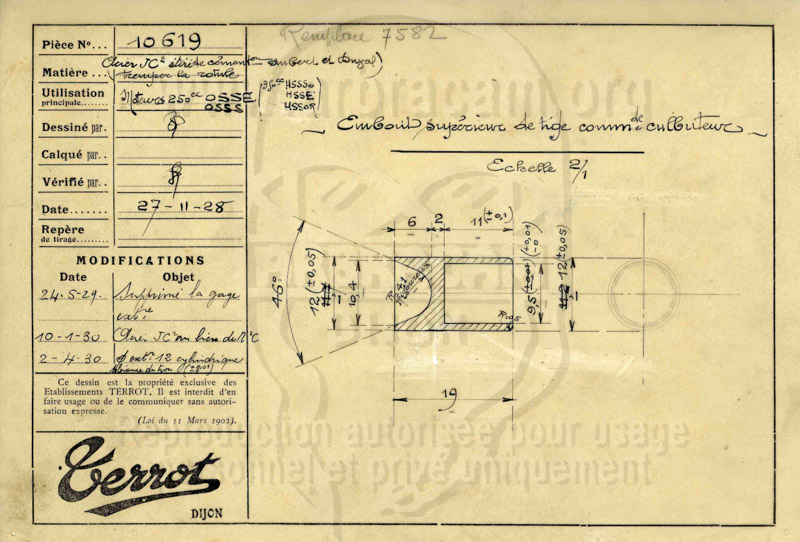 Remplace 7582
Pièce No... 10619
Matière... Acier JC étiré cémenton
(tremper la rotule
Utilisation
principale... Moteurs 250cc OSSE
OSSS
(350cc HSSO
HSSE
HSSOR)
Dessiné par.
Calqué par..
Vérifié par..
Date....... 27-11-28
Repère
de tirage.....
MODIFICATIONS
Date Objet
24.5-29. Supprimé la gorge
extre
10-1-30 Acier JC au lieu de NC
2-4-30 d extr 12 cylindrique
Ce dessin est la propriété exclusive des
Etablissements TERROT. Il est interdit d'en
faire usage ou de le communiquer sans autori-
sation expresse.
(Loi du 11 Mars 1902).
Terrot
DIJON
Embout supérieur de tige commde culbuteur
Echelle 2/1
6 2 11(±0,1)
46°
12(±0,05)
10,4
R=4,1
9,5(+0,01 -0)
11.2 12(±0,05)
R=0,5
19
Reproduction autorisée pour usage
personnel et privé uniquement